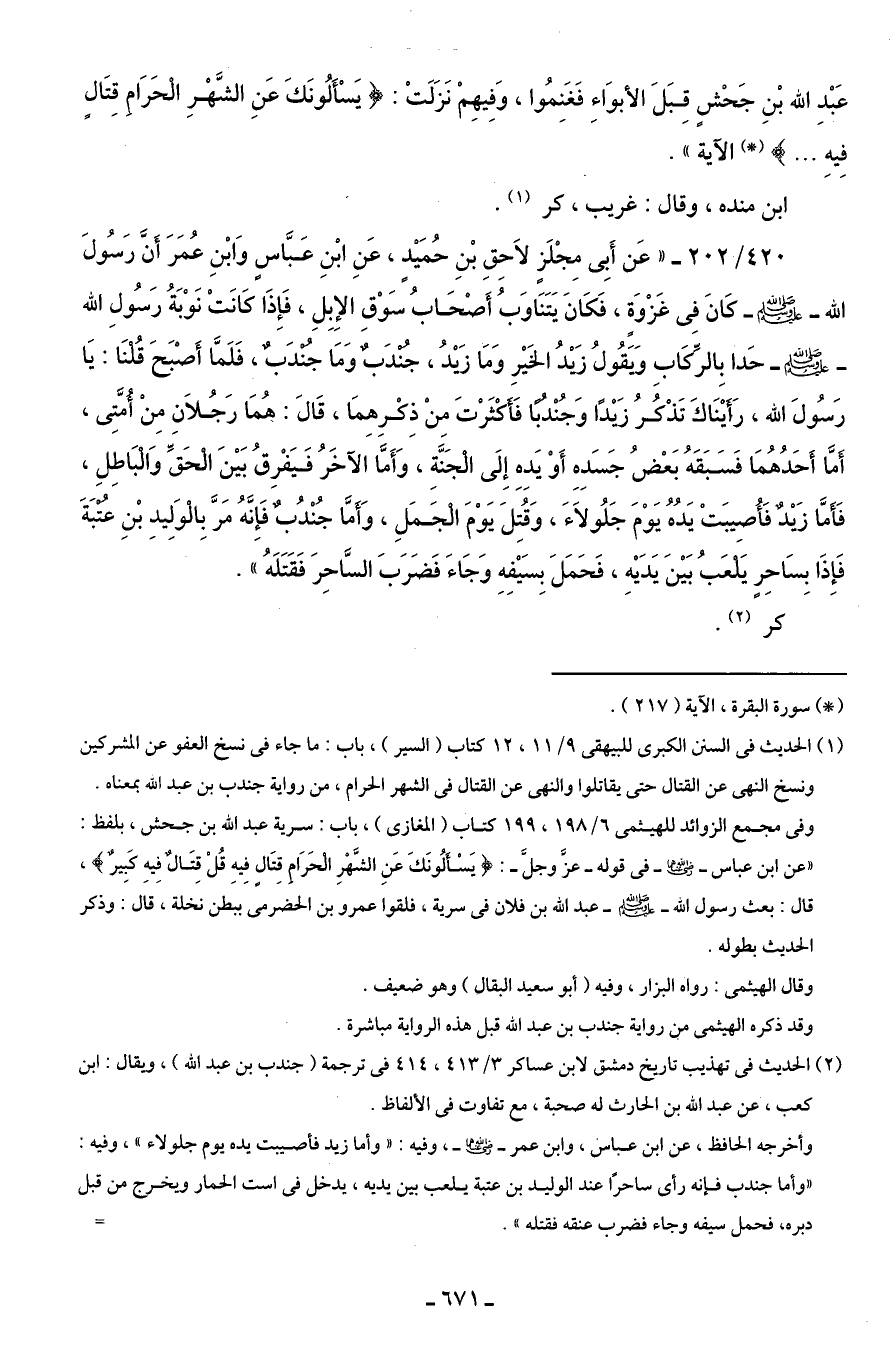 عَبْدِ الله بْنِ جَحْشٍ قِبَلَ الأبوَاءِ فَغَنِمُوا ، وَفِيهِمْ نَزَلَتْ : ﴿ يَسْأَلُونَكَ عَنِ الشَّهْرِ الْحَرَامِ قِتَالٍ
فِيهِ ... ﴾ (*) الآية » .
ابن منده ، وقال : غريب ، كر (١) .
٢٠٢/٤٢٠ ـ « عَن أَبِى مِجْلَزٍ لاَحِقِ بْنِ حُمَيْدٍ ، عَنِ ابْنِ عَبَّاسٍ وَابْنِ عُمَرَ أَنَّ رَسُولَ
الله ـ ﷺ ـ كَانَ فِى غَزْوَةٍ ، فَكَانَ يَتَنَاوَبُ أَصْحَابُ سَوْقِ الإِبِلِ ، فَإِذَا كَانَتْ نَوْبَةُ رَسُولِ الله
ـ ﷺ ـ حَدا بِالرِّكَابِ وَيَقُولُ زَيْدُ الخَيْرِ وَمَا زَيْدُ ، جُنْدَبٌ وَمَا جُنْدَبٌ ، فَلَمَّا أَصْبَحَ قُلْنَا : يَا
رَسُولَ الله ، رَأَيْنَاكَ تَذْكُرُ زَيْدًا وَجُنْدُبًا فَأَكْثَرْتَ مِنْ ذِكْرِهِمَا ، قَالَ : هُمَا رَجُلاَنِ مِنْ أُمَّتِى ،
أَمَّا أَحَدُهُمَا فَسَبَقَهُ بَعْضُ جَسَدِهِ أَوْ يَدِهِ إِلَى الْجَنَّةِ ، وَأَمَّا الآخَرُ فَيَفْرِقُ بَيْنَ الْحَقِّ وَالْبَاطِلِ ،
فَأَمَّا زَيْدٌ فَأُصِيبَتْ يَدُهُ يَوْمَ جَلُولاَءَ ، وَقُتِلَ يَوْمَ الْجَمَلِ ، وَأَمَّا جُنْدُبٌ فَإِنَّهُ مَرَّ بِالْوَلِيدِ بْنِ عُتْبَةَ
فَإِذَا بِسَاحِرٍ يَلْعَبُ بَيْنَ يَدَيْهِ ، فَحَمَلَ بِسَيْفِهِ وَجَاءَ فَضَرَبَ السَّاحِرَ فَقَتَلَهُ » .
كر (٢) .
(*) سورة البقرة ، الآية ( ٢١٧ ) .
(١) الحديث فى السنن الكبرى للبيهقى ٩/ ١١ ، ١٢ كتاب ( السير ) ، باب : ما جاء فى نسخ العفو عن المشركين
ونسخ النهى عن القتال حتى يقاتلوا والنهى عن القتال فى الشهر الحرام ، من رواية جندب بن عبد الله بمعناه .
وفى مجمع الزوائد للهيثمى ٦/ ١٩٨ ، ١٩٩ كتاب ( المغازى ) ، باب : سرية عبد الله بن جحش ، بلفظ :
«عن ابن عباس ـ رضي الله عنهما ـ فى قوله ـ عزَّ وجلَّ ـ : ﴿ يَسْأَلُونَكَ عَنِ الشَّهْرِ الْحَرَامِ قِتَالٍ فِيهِ قُلْ قِتَالٌ فِيهِ كَبِيرٌ ﴾ ،
قال : بعث رسول الله ـ ﷺ ـ عبد الله بن فلان فى سرية ، فلقوا عمرو بن الحضرمى ببطن نخلة ، قال : وذكر
الحديث بطوله .
وقال الهيثمى : رواه البزار ، وفيه ( أبو سعيد البقال ) وهو ضعيف .
وقد ذكره الهيثمى من رواية جندب بن عبد الله قبل هذه الرواية مباشرة .
(٢) الحديث فى تهذيب تاريخ دمشق لابن عساكر ٣/ ٤١٣ ، ٤١٤ فى ترجمة ( جندب بن عبد الله ) ، ويقال : ابن
كعب ، عن عبد الله بن الحارث له صحبة ، مع تفاوت فى الألفاظ .
وأخرجه الحافظ ، عن ابن عباس ، وابن عمر ـ رضي الله عنهم ـ ، وفيه : « وأما زيد فأصيبت يده يوم جلولاء » ، وفيه :
«وأما جندب فإنه رأى ساحرًا عند الوليد بن عتبة يلعب بين يديه ، يدخل فى است الحمار ويخرج من قبل
دبره، فحمل سيفه وجاء فضرب عنقه فقتله » . =
ـ ٦٧١ ـ